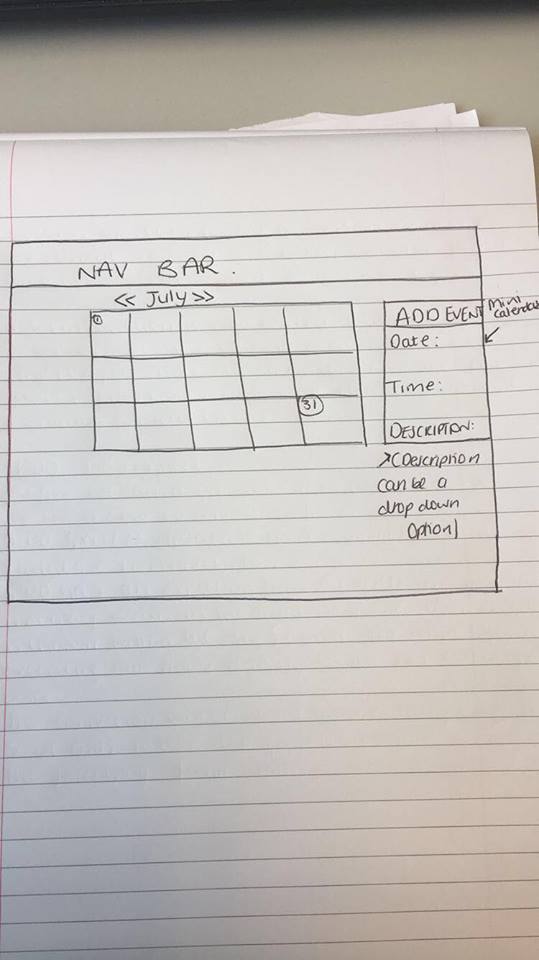 NAV BAR.
<< July >>
1
31
ADD EVENT
Mini
calendar
Date:
Time:
DESCRIPTION:
(Description
can be a
drop down
option)